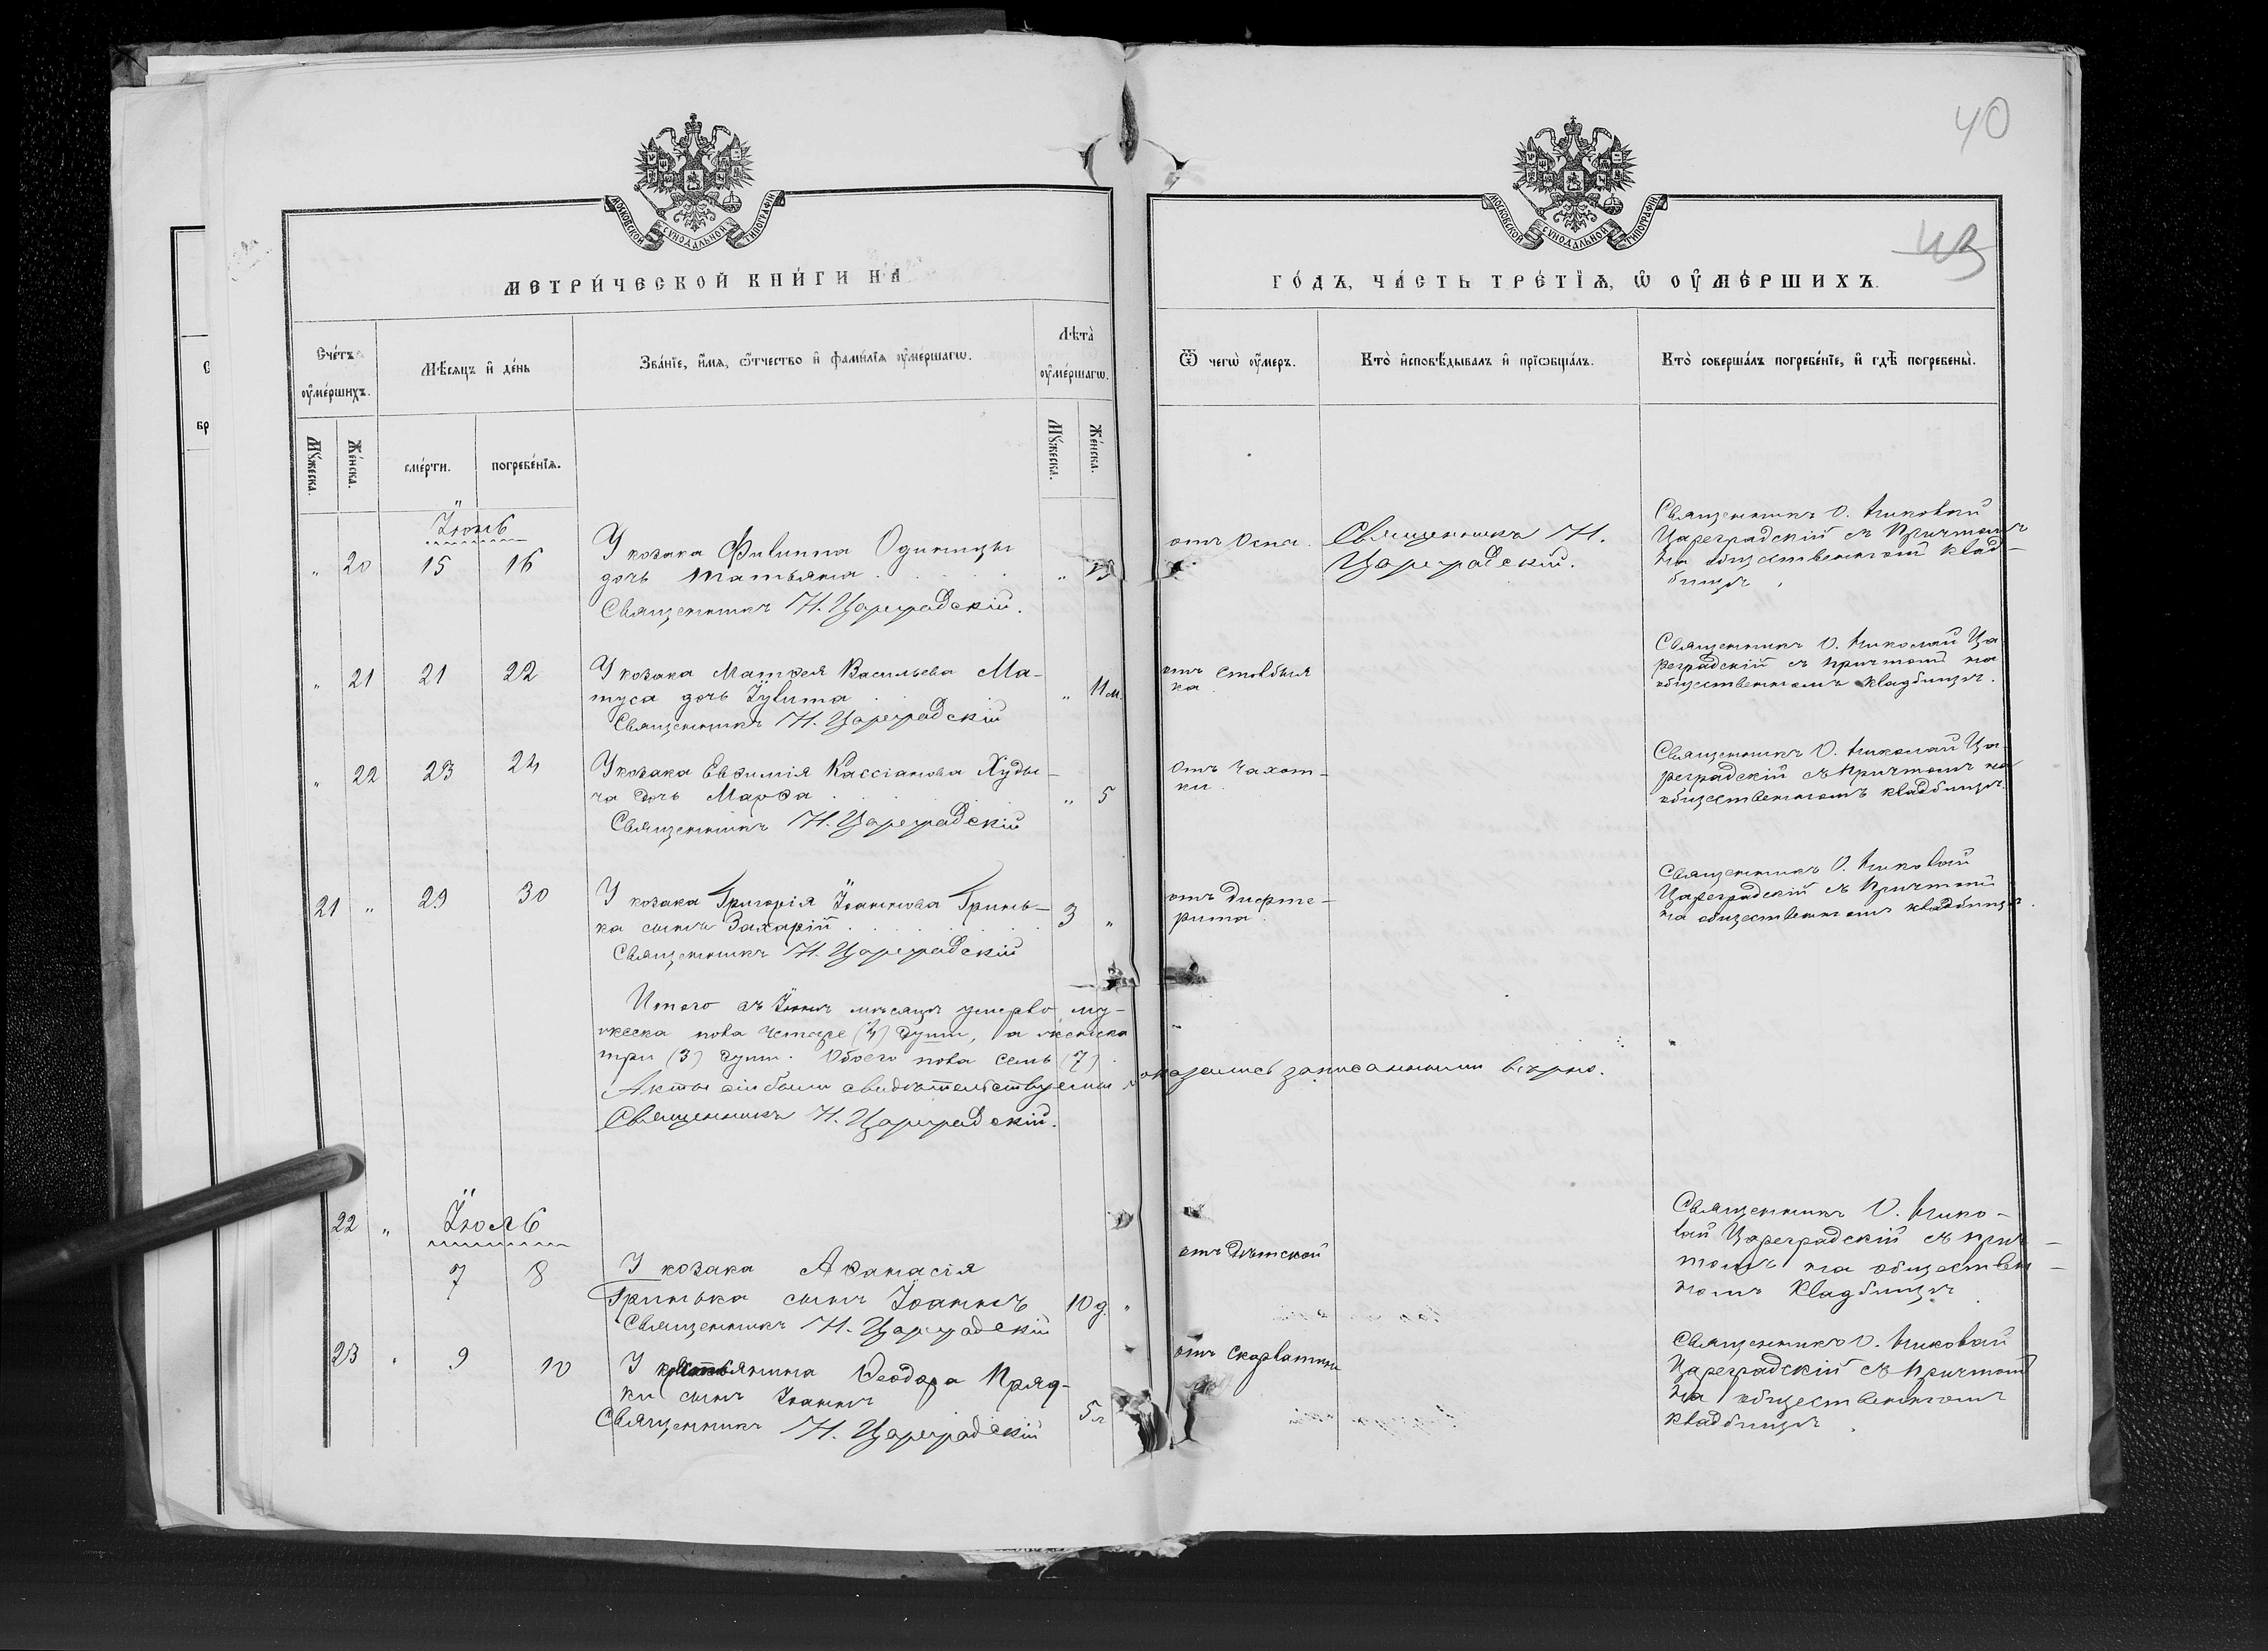 40
МОСКОВСКОЙ СѴНОДАЛЬНОЙ ТИПОГРАФІИ
МОСКОВСКОЙ СѴНОДАЛЬНОЙ ТИПОГРАФІИ
МЕТРИ́ЧЕСКОЙ КНИ́ГИ НА
ГО́ДЪ, ЧА́СТЬ ТРЕ́ТІѦ, Ѡ ОУ҆МЕ́РШИХЪ.
Сче́тъ оу҆ме́ршихъ.
Мѣ́сяцъ и҆ де́нь
Зва́нїе, и҆́мѧ, ѻ҆́тчество и҆ фами́лїѧ оу҆ме́ршагѡ.
Лѣта̀ оу҆ме́ршагѡ.
Ѿ чегѡ̀ оу҆́меръ.
Кто̀ и҆сповѣ́дывалъ и҆ прїѡбща́лъ.
Кто̀ соверша́лъ погребе́нїе, и҆ гдѣ̀ погребены̀.
Мꙋ́жеска.
Же́нска.
сме́рти.
погребе́нїѧ.
Мꙋ́жеска.
Же́нска.
Іюнь
" 20 15 16
У козака Филиппа Одинцы
дочь Татьяна "
Священникъ Н. Цареградскій.
отъ Оспы.
Священникъ Н.
Цареградскій.
Священникъ О. Николай
Цареградскій съ Причтомъ
на общественномъ клад-
бищѣ.
" 21 21 22
У козака Матѳея Васильева Ма-
туса дочь Іулита " 11 м.
Священникъ Н. Цареградскій
отъ столбня
ка
Священникъ О. Николай Ца
реградскій съ причтомъ на
общественномъ кладбищѣ.
" 22 23 24
У козака Евѳимія Кассіанова Худы-
ча дочь Марѳа " 5
Священникъ Н. Цареградскій
отъ чахот-
ки
Священникъ О. Николай Ца-
реградскій съ Причтомъ на
общественномъ кладбищѣ.
21 " 29 30
У козака Григорія Іоаннова Гринь-
ка сынъ Захарій 3 "
Священникъ Н. Цареградскій
отъ дифте-
рита
Священникъ О. Николай
Цареградскій съ Причтомъ
на общественномъ кладбищѣ.
Итого въ Іюнѣ мѣсяцѣ умерло му-
жеска пола четыре (4) души, а женска
три (3) души. Обоего пола семь (7).
Акты сіи были свидѣтельствуемы и оказались записанными вѣрно.
Священникъ Н. Цареградскій.
22 "
Іюль
7 8
У козака Аѳанасія
Гринька сынъ Іоаннъ 10 д. "
Священникъ Н. Цареградскій
отъ дѣтской
Священникъ О. Нико-
лай Цареградскій съ прич-
томъ на обществен-
номъ кладбищѣ
23 9 10
У крестьянина Ѳеодора Пряд-
ки сынъ Іоаннъ 5 л
Священникъ Н. Цареградскій
отъ скарлатины
Священникъ О. Николай
Цареградскій съ Причтомъ
на общественномъ
кладбищѣ.